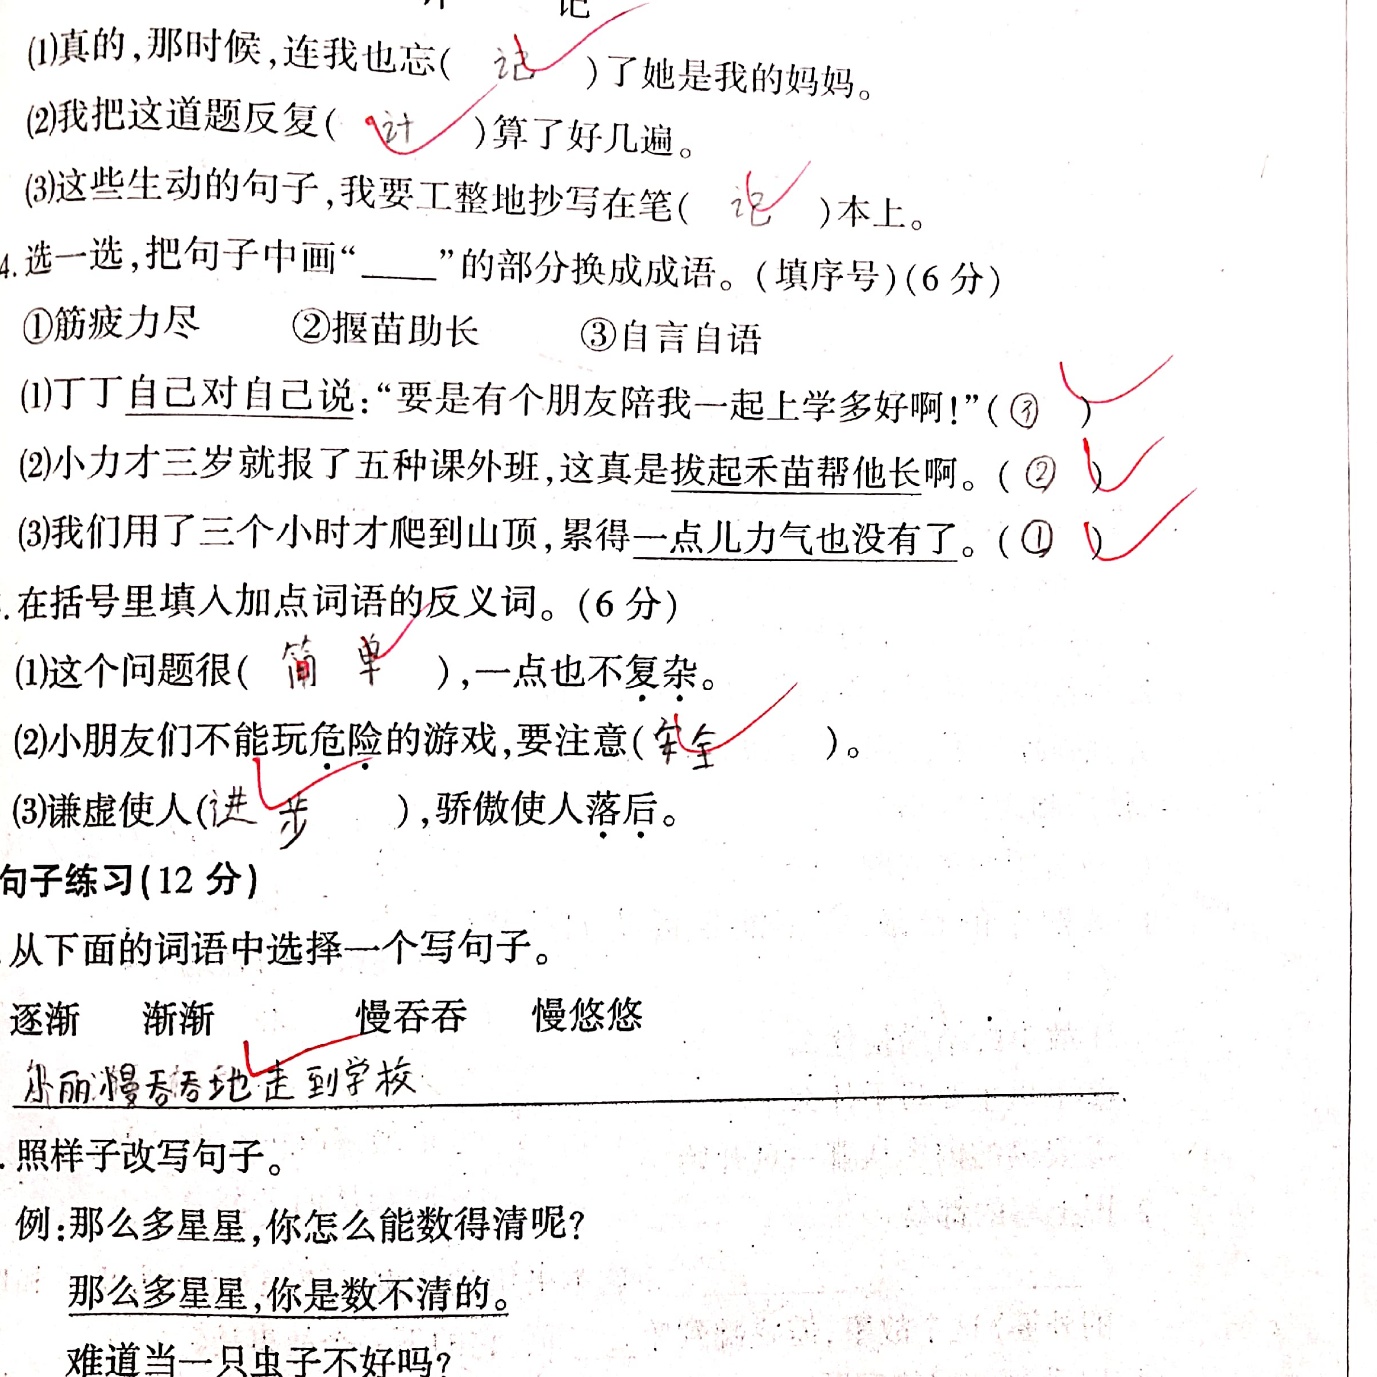 计 记
(1)真的,那时候,连我也忘( 记 )了她是我的妈妈。
(2)我把这道题反复( 计 )算了好几遍。
(3)这些生动的句子,我要工整地抄写在笔( 记 )本上。
4.选一选,把句子中画“____”的部分换成成语。(填序号)(6分)
①筋疲力尽 ②揠苗助长 ③自言自语
(1)丁丁自己对自己说:“要是有个朋友陪我一起上学多好啊!”( ③ )
(2)小力才三岁就报了五种课外班,这真是拔起禾苗帮他长啊。( ② )
(3)我们用了三个小时才爬到山顶,累得一点儿力气也没有了。( ① )
.在括号里填入加点词语的反义词。(6分)
(1)这个问题很( 简单 ),一点也不复杂。
(2)小朋友们不能玩危险的游戏,要注意( 安全 )。
(3)谦虚使人( 进步 ),骄傲使人落后。
句子练习(12分)
.从下面的词语中选择一个写句子。
逐渐 渐渐 慢吞吞 慢悠悠
小丽慢吞吞地走到学校
.照样子改写句子。
例:那么多星星,你怎么能数得清呢?
那么多星星,你是数不清的。
难道当一只虫子不好吗?